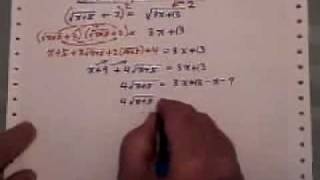 (√x+5 + 2)² = √3x+13 ²
(√x+5 + 2)(√x+5 + 2) = 3x+13
x+5+2√x+5+2√x+5+4 = 3x+13
x+9 +4√x+5 = 3x+13
4√x+5 = 3x+13-x-9
4√x+5